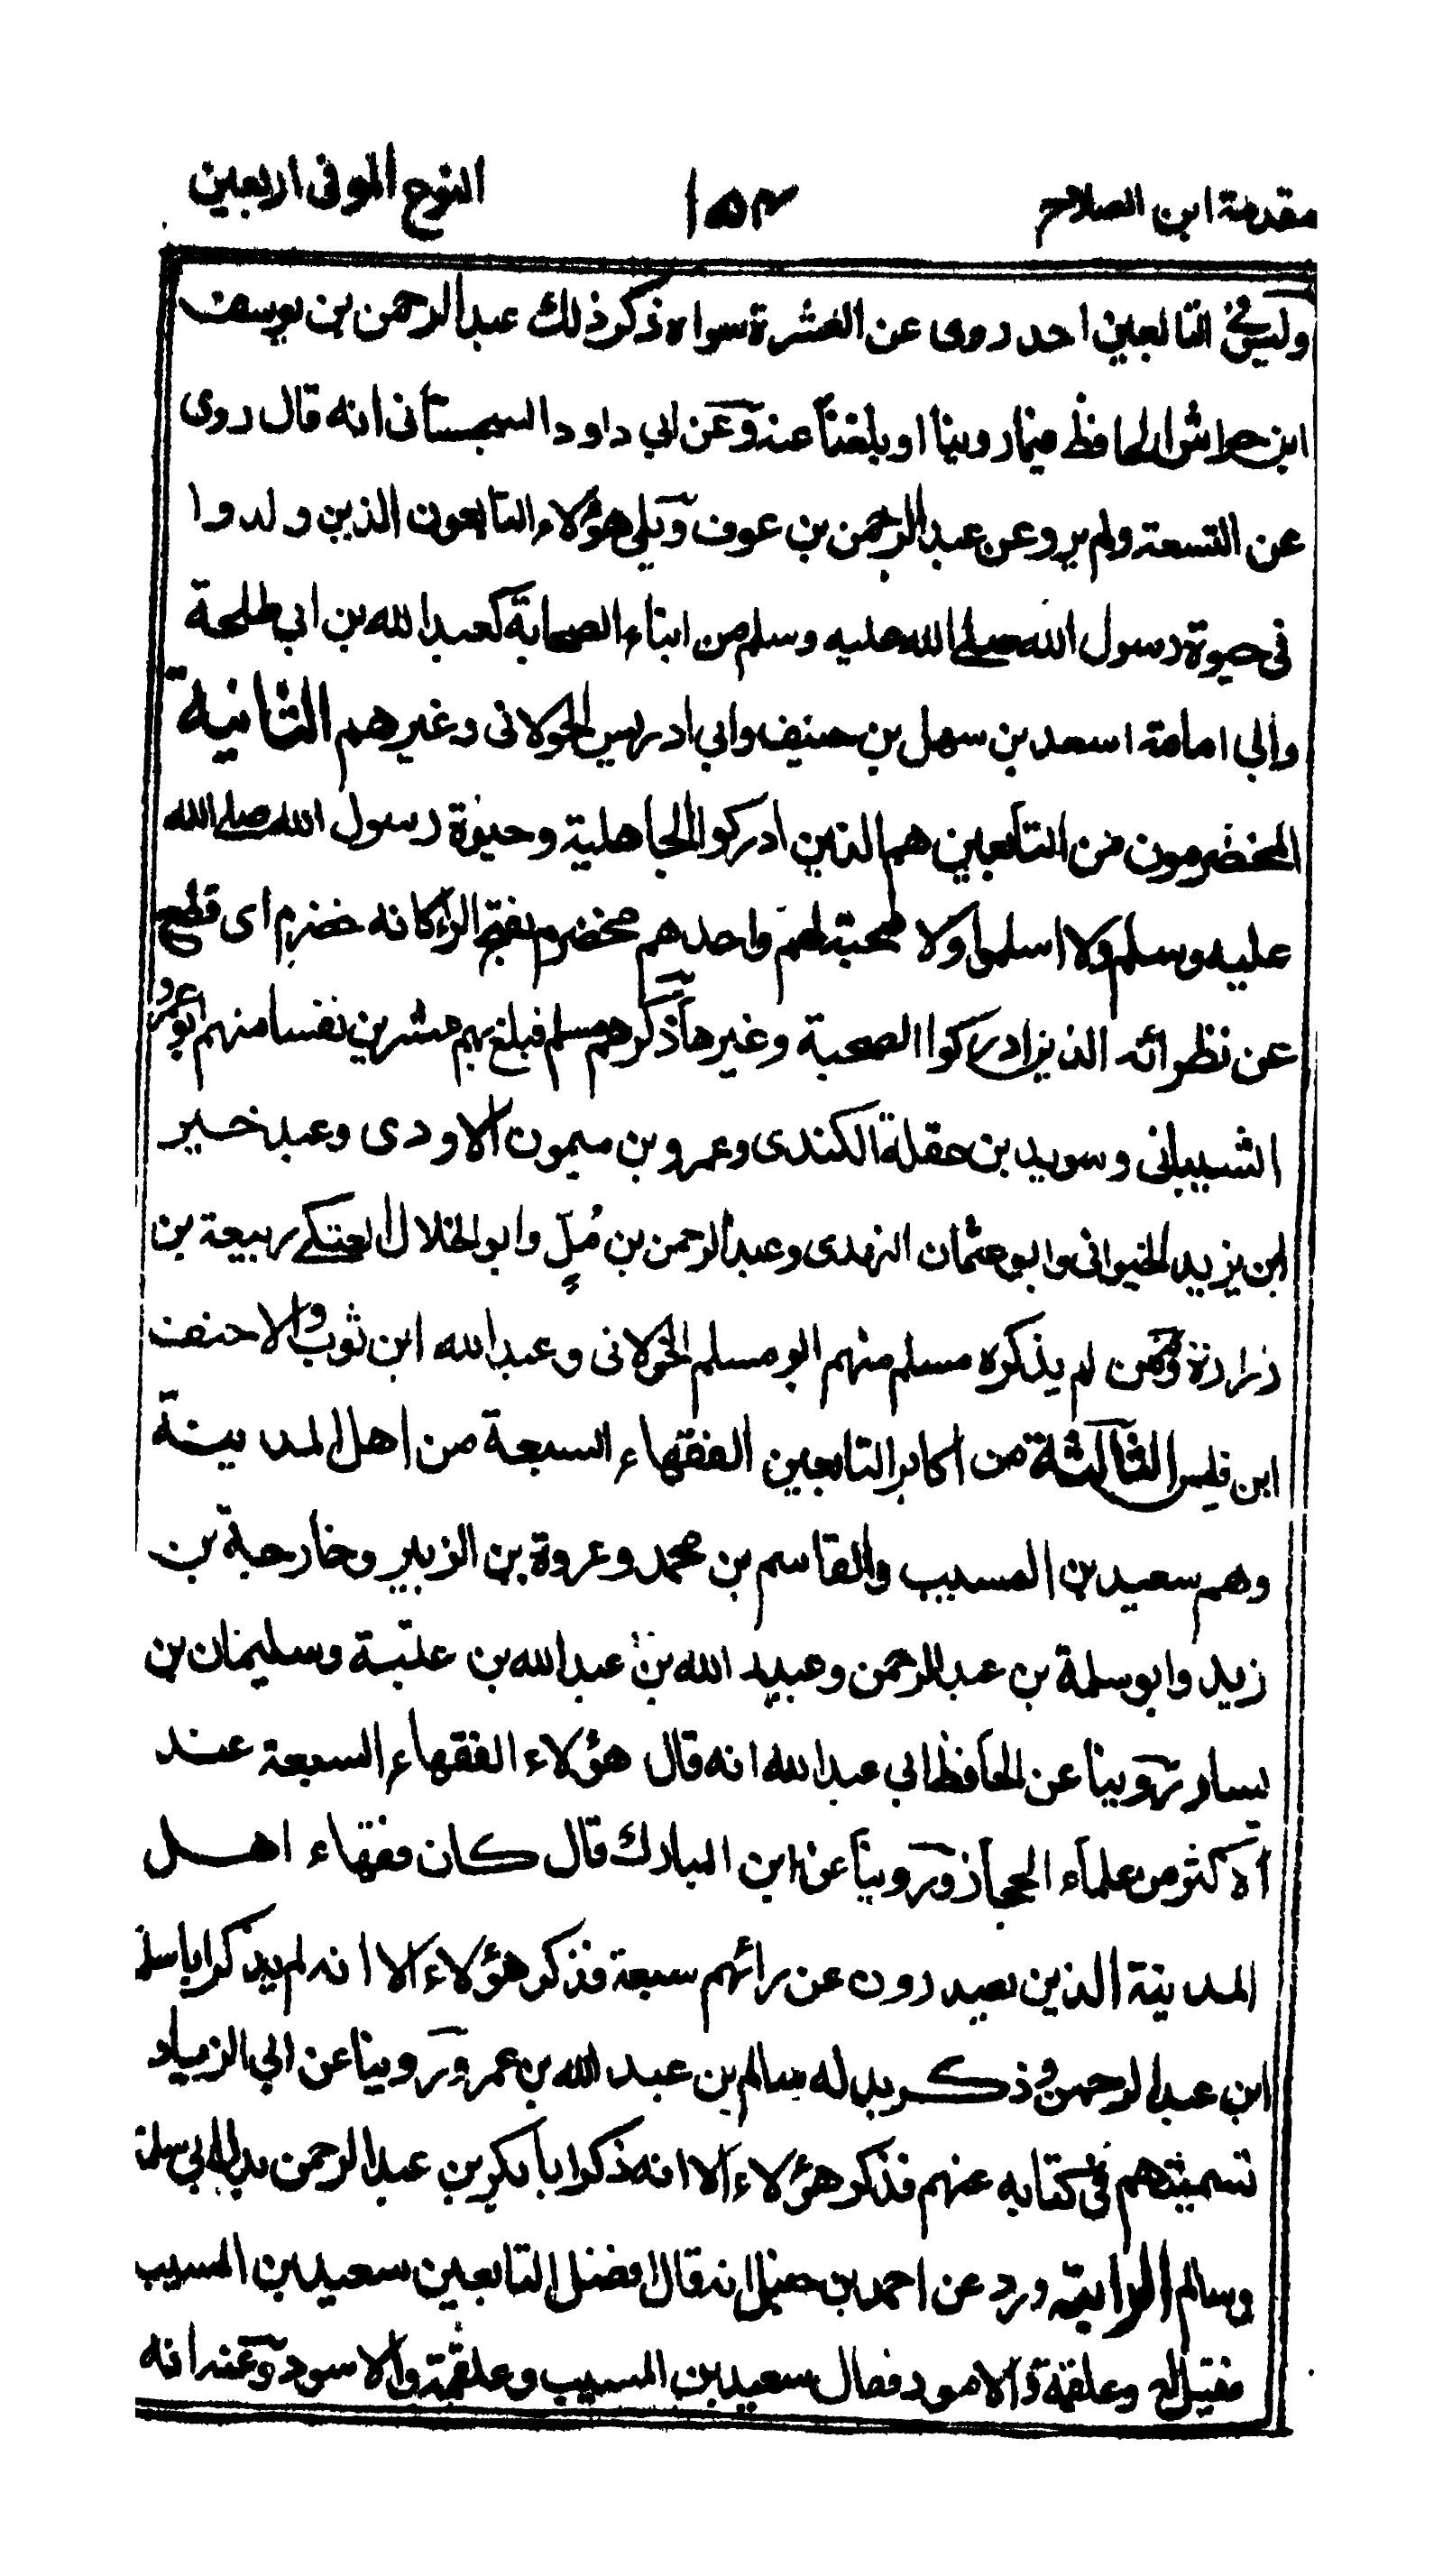 مقدمة ابن الصلاح ١٥٣ النوع الموفى اربعين
وليس فى التابعين احد روى عن العشرة سواه ذكر ذلك عبد الرحمن بن يوسف
ابن خراش الحافظ فيما روينا او بلغنا عنه وعن ابي داود السجستانى انه قال روى
عن التسعة ولم يرو عن عبد الرحمن بن عوف ويلى هؤلاء التابعون الذين ولدوا
فى حيوة رسول الله صلى الله عليه وسلم من ابناء الصحابة كعبد الله بن ابي طلحة
وابي امامة اسعد بن سهل بن حنيف وابي ادريس الخولانى وغيرهم الثانية
المخضرمون من التابعين هم الذين ادركوا الجاهلية وحيوة رسول الله صلى الله
عليه وسلم ولا اسلموا ولا صحبة لهم واحدهم مخضرم بفتح الراء كانه خضرم اى قطع
عن نظرائه الذين ادركوا الصحبة وغيرها ذكرهم مسلم فبلغ بهم عشرين نفسا منهم ابو عمرو
الشيبانى وسويد بن حقلة الكندى وعمرو بن ميمون الاودى وعبد خير
ابن يزيد الخيوانى وابو عثمان النهدى وعبد الرحمن بن مُلٍّ وابو الخلال العتكى ربيعة بن
زرارة وممن لم يذكره مسلم منهم ابو مسلم الخولانى وعبد الله ابن ثوب والاحنف
ابن قيس الثالثة من اكابر التابعين الفقهاء السبعة من اهل المدينة
وهم سعيد بن المسيب والقاسم بن محمد وعروة بن الزبير وخارجة بن
زيد وابو سلمة بن عبد الرحمن وعبيد الله بن عبد الله بن عتبة وسليمان بن
يسار روينا عن الحافظ ابي عبد الله انه قال هؤلاء الفقهاء السبعة عند
الاكثر من علماء الحجاز وروينا عن ابن المبارك قال كان فقهاء اهل
المدينة الذين يصدرون عن رائهم سبعة فذكر هؤلاء الا انه لم يذكر ابا سلمة
ابن عبد الرحمن وذكر بدله سالم بن عبد الله بن عمر وروينا عن ابي الزياد
تسميتهم فى كتابه عنهم فذكر هؤلاء الا انه ذكر ابا بكر بن عبد الرحمن بدل ابي سلمة
وسالم الرابعة ورد عن احمد بن حنبل انه قال افضل التابعين سعيد بن المسيب
فقيل له وعلقمة والاسود فقال سعيد بن المسيب وعلقمة والاسود وعنه انه